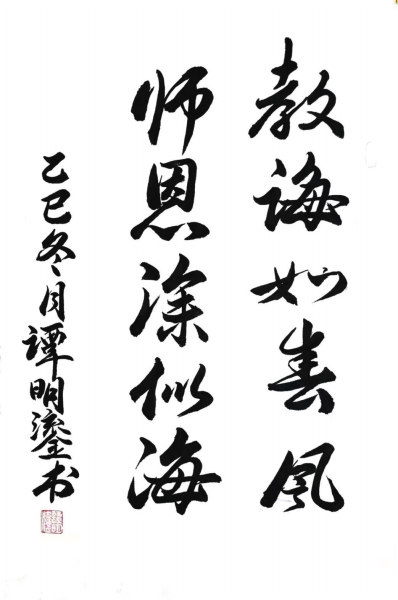 教诲如春风
师恩深似海
乙巳冬月谭明鎏书